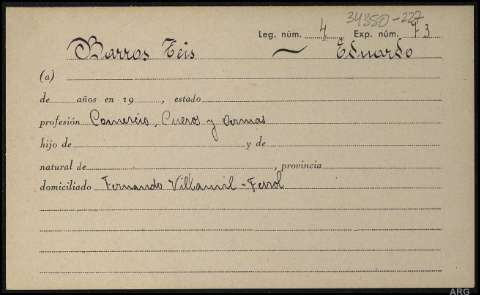 34350-227
Leg. núm. 4 Exp. núm. 73
Barros Teis ~ Eduardo
(a)
de años en 19 , estado
profesión Comercio, Cueros y Armas
hijo de y de
natural de , provincia
domiciliado Fernando Villaamil - Ferrol
ARG